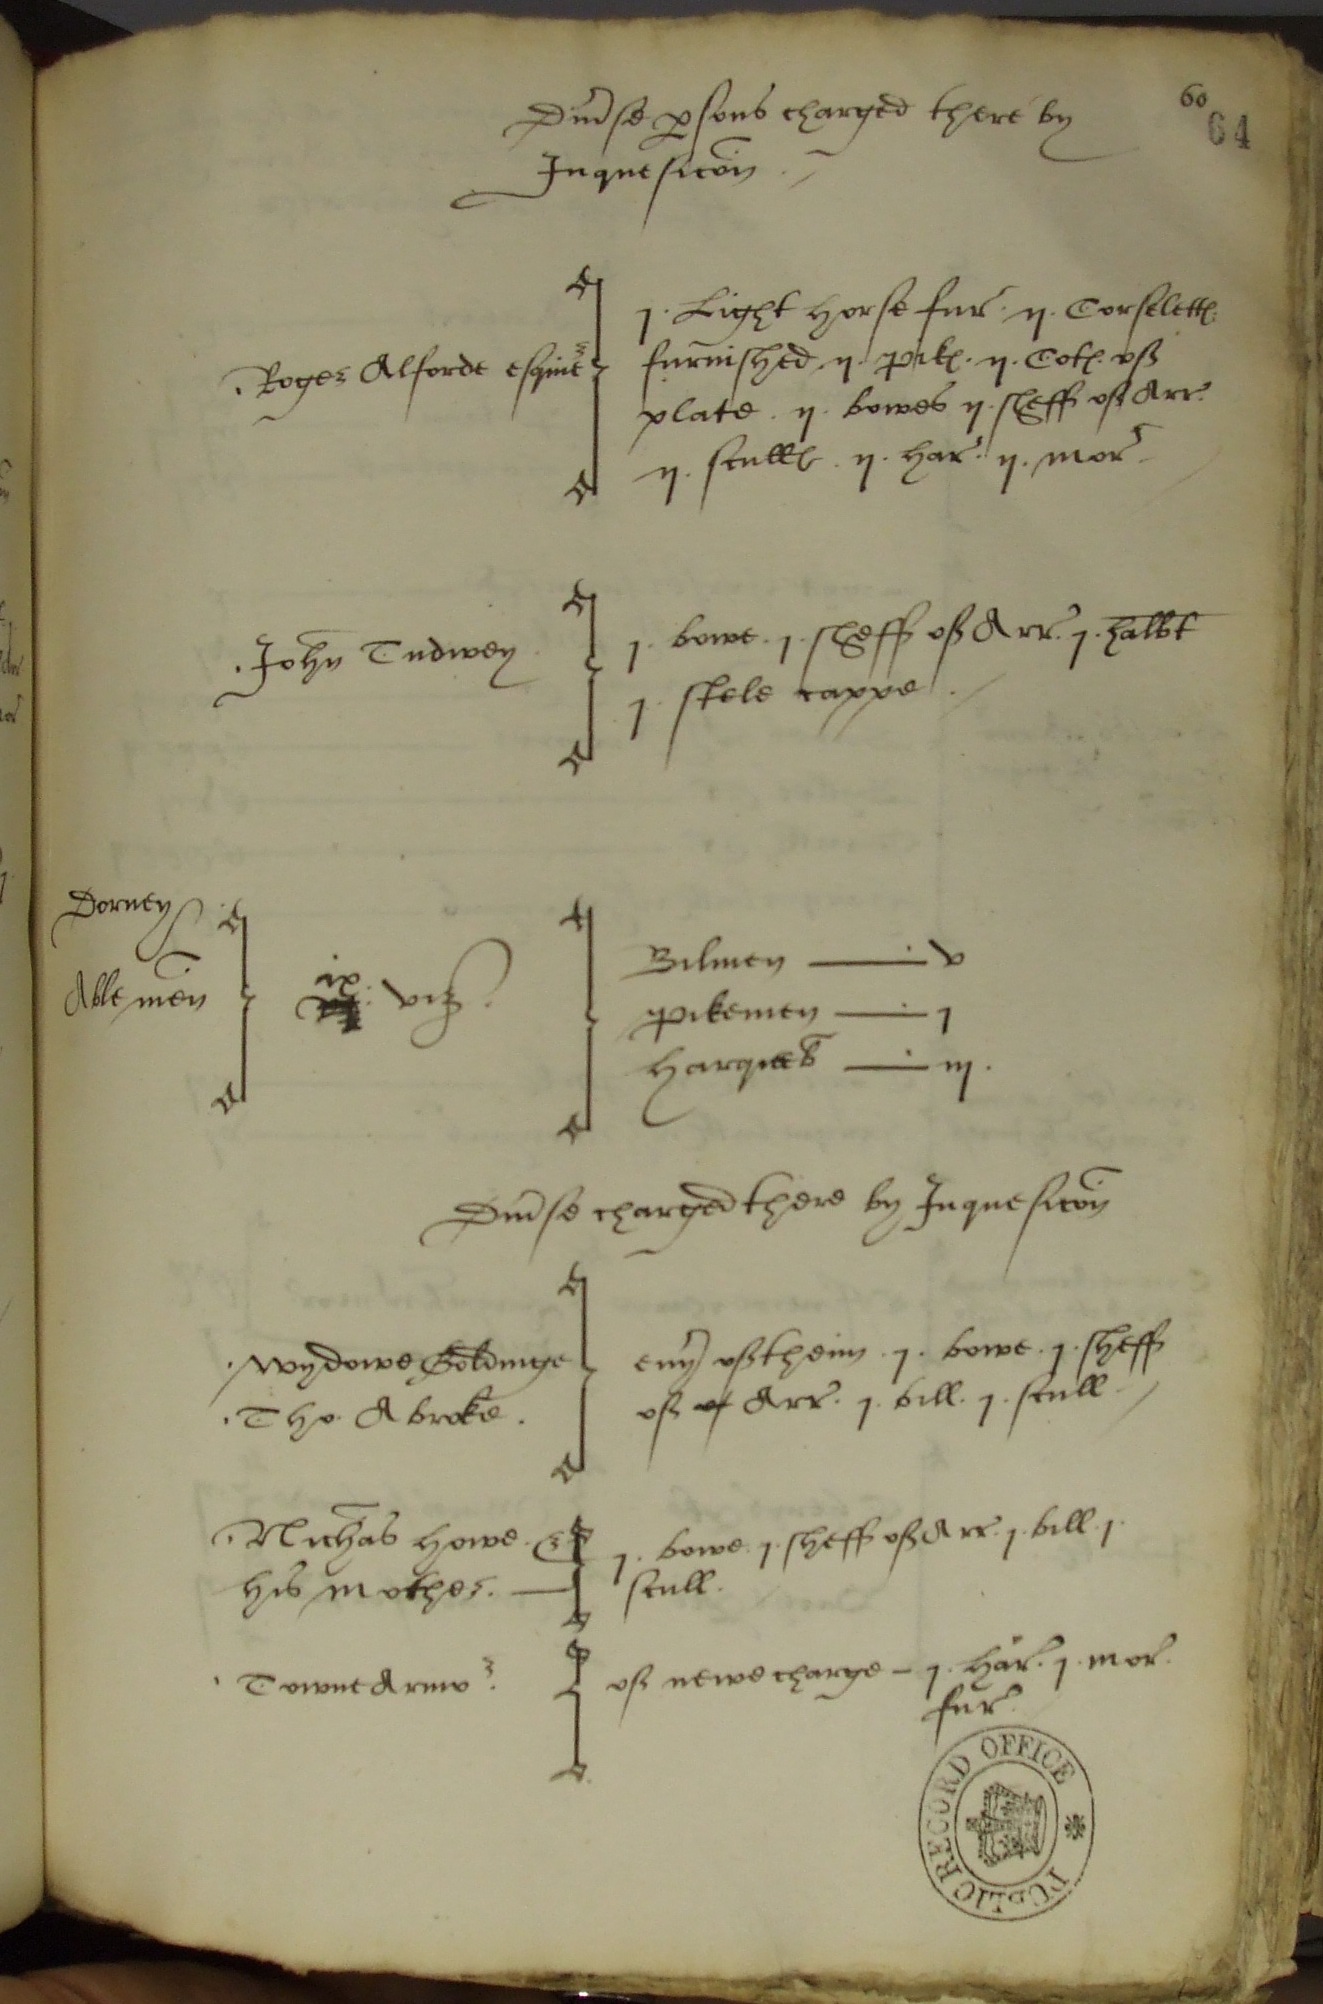 60
64
Div'se p'sons charged there by
Inquesic'on
Roger Alforde esquier
j. Light horse fur'. ij. Corselett
furnished. ij. pik. ij. Cot of
plate. ij. bowes ij. sheff of Arr.
ij. scull. ij. har'. ij. mor'
John Tudwey
j. bowe. j. sheff of Arr. j. halbt
j. stele cappe.
Dorney
Able men
ix. viz.
Bilmen v
pikemen j
harqueb iij.
Div'se charged there by Inquesic'on
Wydowe Goldinge
Tho. Abroke.
eu'y of theim. j. bowe. j. sheff
of of Arr. j. bill. j. scull
Nich'as howe. &
his mother.
j. bowe. j. sheff of Arr. j. bill. j.
scull.
Towne Armor.
of newe charge – j. har'. j. mor'.
fur'.
PUBLIC RECORD OFFICE